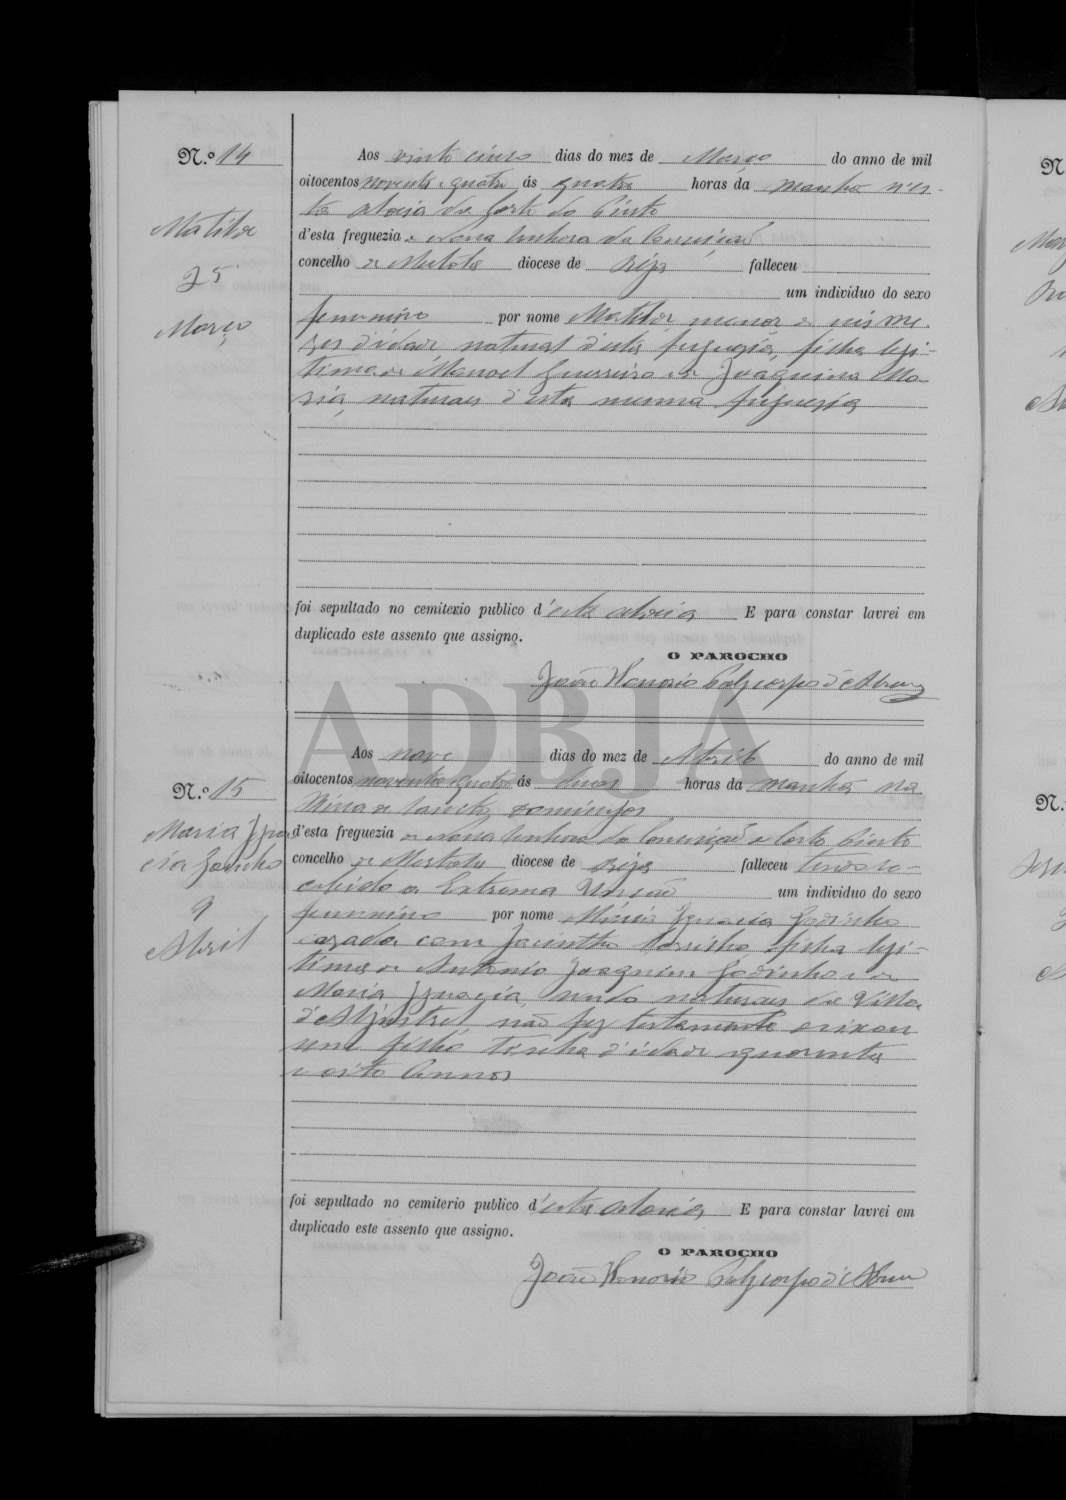 N.º 14
Aos vinte cinco dias do mez de Março do anno de mil
oitocentos noventa e quatro ás quatro horas da manhã n'es-
ta aldeia da Corte do Pinto
d'esta freguezia de Nossa Senhora da Conceição
concelho de Mertola diocese de Beja falleceu
um individuo do sexo
femenino por nome Matilde menor de seis me-
zes d'idade natural d'esta freguezia, filha legi-
tima de Manoel Guerreiro e de Joaquina Ma-
ria, naturaes d'esta mesma freguezia
foi sepultado no cemiterio publico d'esta aldeia E para constar lavrei em
duplicado este assento que assigno.
O PAROCHO
João Honorio d'Abreu
Matilde
25
Março
ADBJA
N.º 15
Aos nove dias do mez de Abril do anno de mil
oitocentos noventa e quatro ás duas horas da manhã na
Mina de San Domingos
d'esta freguezia de Nossa Senhora da Conceição de Corte Pinto
concelho de Mertola diocese de Beja falleceu tendo re-
cebido a Extrema Unção um individuo do sexo
femenino por nome Maria Ignacia Godinho
cazada com Jacintho, filha legi-
tima de Antonio Joaquim Godinho e de
Maria Ignacia, sendo naturaes da Villa
d'Aljustrel, não fez testamento deixou
um filho, tinha d'idade quarenta
e oito annos
foi sepultado no cemiterio publico d'esta aldeia E para constar lavrei em
duplicado este assento que assigno.
O PAROCHO
João Honorio d'Abreu
Maria Igna-
cia Godinho
9
Abril
N
N.